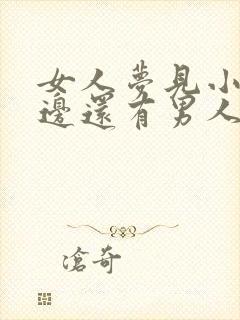 女人夢見小
邊還有男人
滄奇